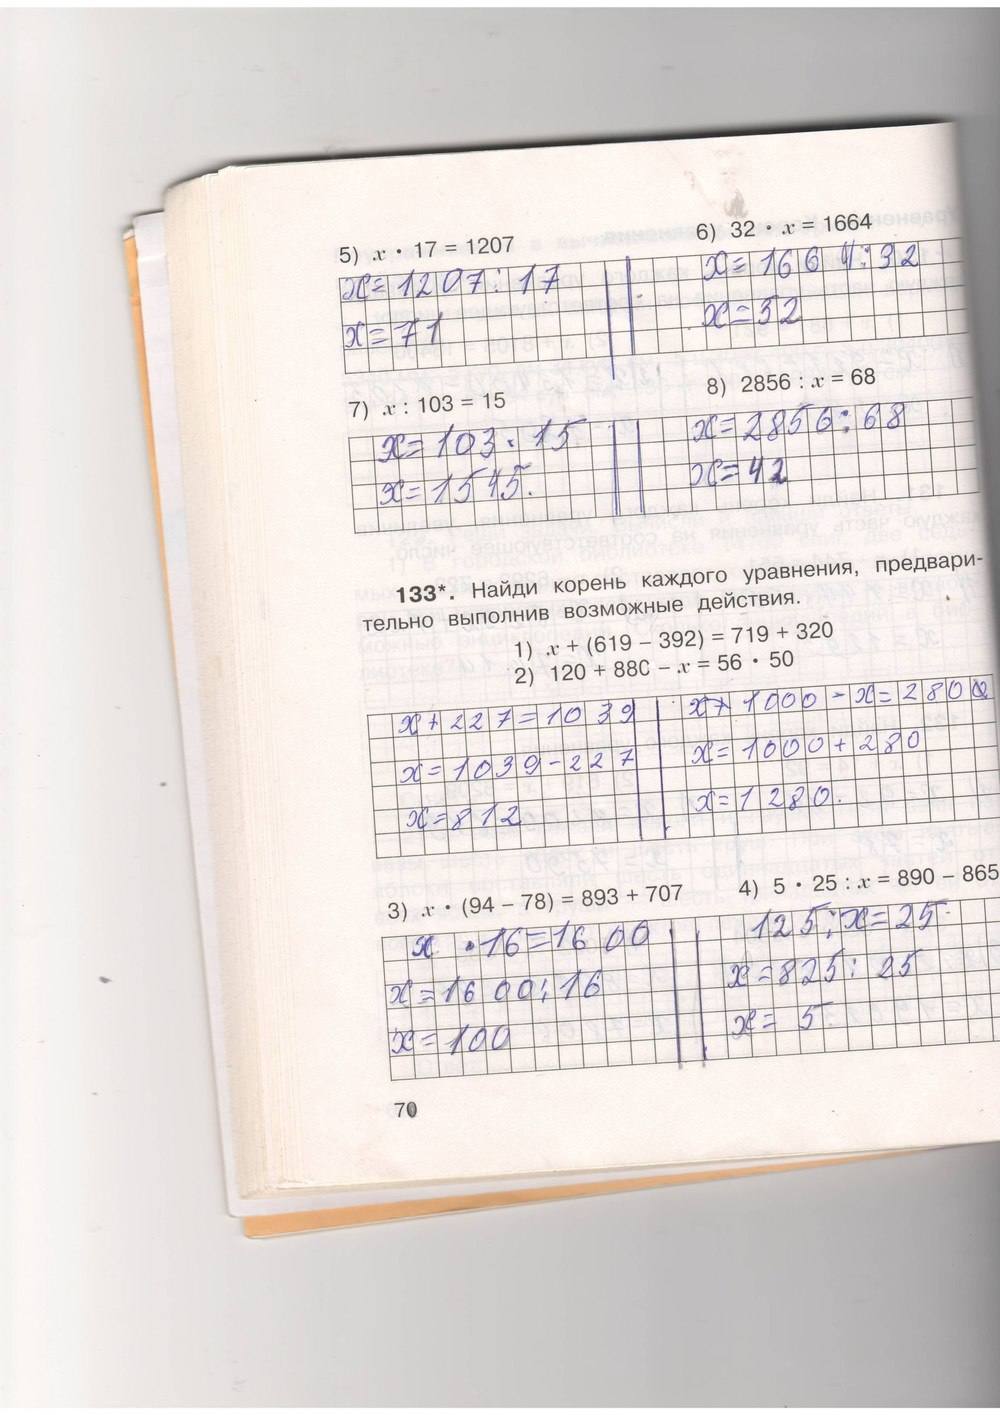 5) x · 17 = 1207
x=1207:17
x=71
6) 32 · x = 1664
x=1664:32
x=52
7) x : 103 = 15
x=103·15
x=1545.
8) 2856 : x = 68
x=2856:68
x=42
133*. Найди корень каждого уравнения, предвари-
тельно выполнив возможные действия.
1) x + (619 – 392) = 719 + 320
2) 120 + 880 – x = 56 · 50
x+227=1039
x=1039-227
x=812
1000-x=2800
x=1000+280
x=1280.
3) x · (94 – 78) = 893 + 707
x ·16=1600
x=1600:16
x=100
4) 5 · 25 : x = 890 – 865
125:x=25
x=825:25
x= 5
70